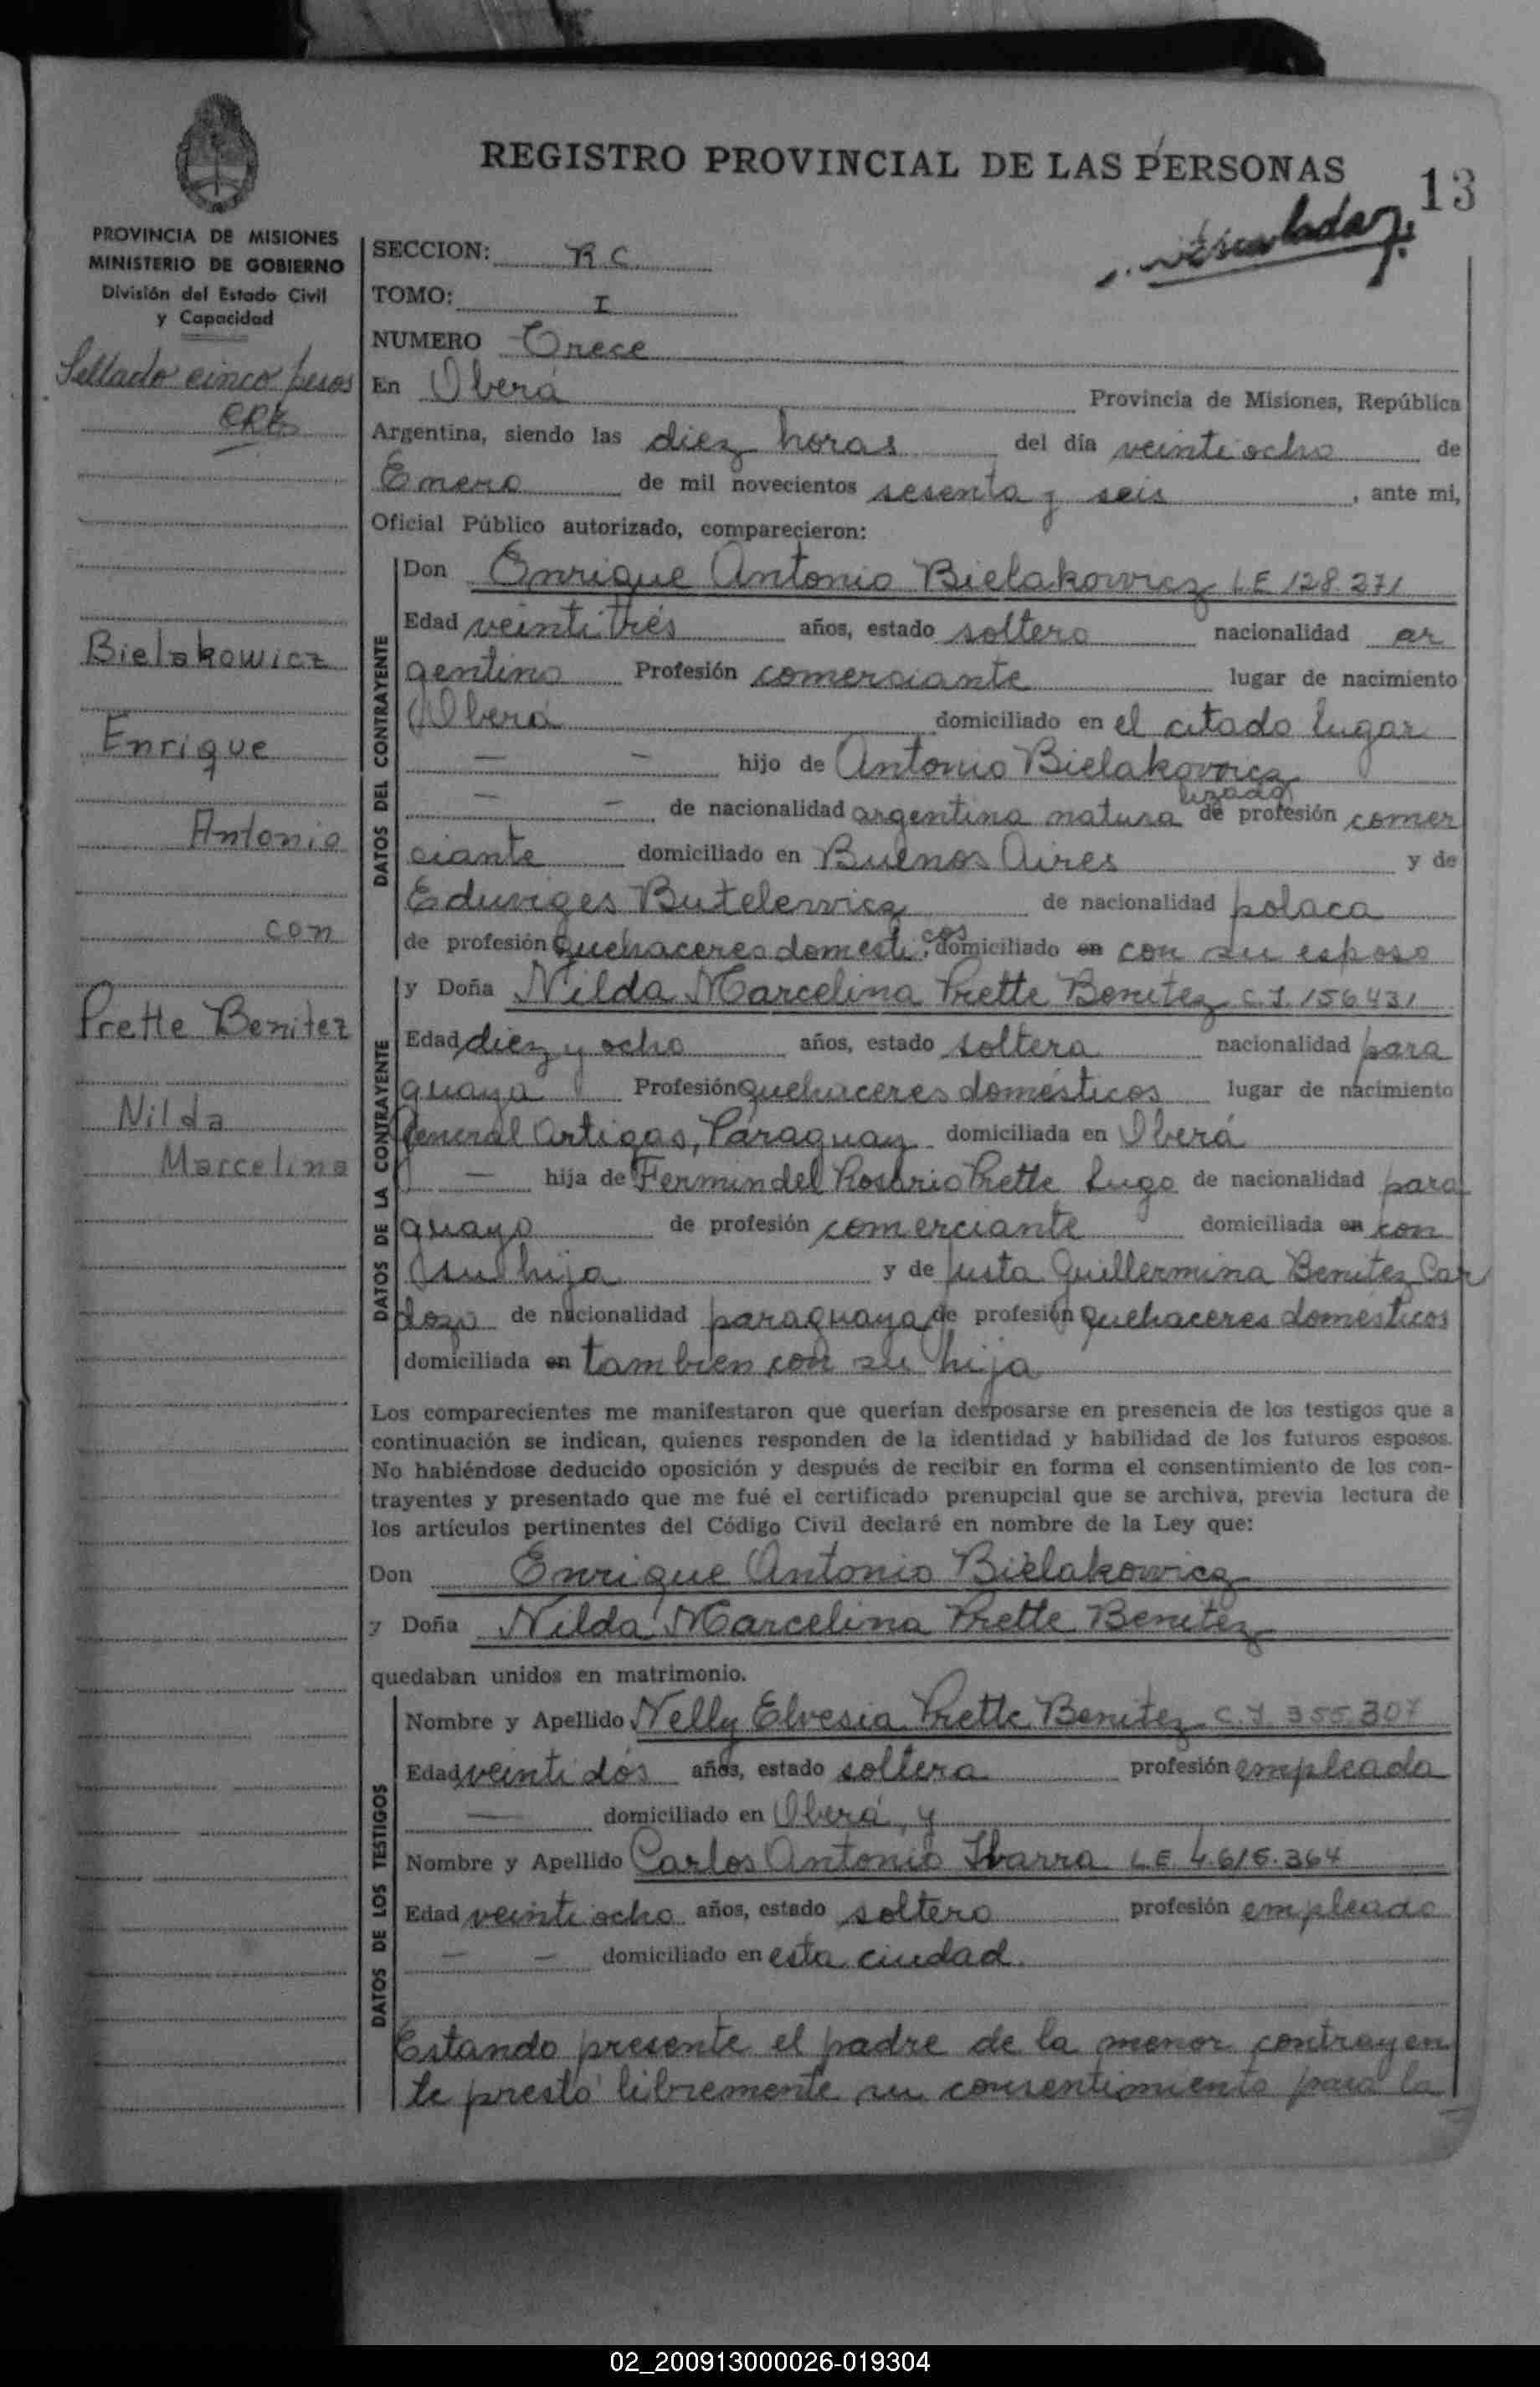 REGISTRO PROVINCIAL DE LAS PERSONAS
13
PROVINCIA DE MISIONES
MINISTERIO DE GOBIERNO
División del Estado Civil
y Capacidad
Sellado cinco pesos
Bielakowicz
Enrique
Antonio
con
Prette Benitez
Nilda
Marcelina
SECCION: R C
TOMO: I
NUMERO Trece
En Oberá Provincia de Misiones, República
Argentina, siendo las diez horas del día veintiocho de
Enero de mil novecientos sesenta y seis, ante mi,
Oficial Público autorizado, comparecieron:
DATOS DEL CONTRAYENTE
Don Enrique Antonio Bielakowicz L E 128.271
Edad veintitrés años, estado soltero nacionalidad ar
gentino Profesión comerciante lugar de nacimiento
Oberá domiciliado en el citado lugar
— — hijo de Antonio Bielakowicz
— — de nacionalidad argentina natura lizado de profesión comer
ciante domiciliado en Buenos Aires y de
Eduviges Butelewicz de nacionalidad polaca
de profesión quehaceres domésti cos, domiciliado en con su esposo
DATOS DE LA CONTRAYENTE
y Doña Nilda Marcelina Prette Benitez C.I. 156431
Edad diez y ocho años, estado soltera nacionalidad para
guaya Profesión quehaceres domésticos lugar de nacimiento
General Artigas, Paraguay domiciliada en Oberá
— hija de Fermin del Rosario Prette Lugo de nacionalidad para
guayo de profesión comerciante domiciliada en con
su hija y de Justa Guillermina Benitez Car
dozo de nacionalidad paraguaya de profesión quehaceres domésticos
domiciliada en tambien con su hija
Los comparecientes me manifestaron que querían desposarse en presencia de los testigos que a
continuación se indican, quienes responden de la identidad y habilidad de los futuros esposos.
No habiéndose deducido oposición y después de recibir en forma el consentimiento de los con-
trayentes y presentado que me fué el certificado prenupcial que se archiva, previa lectura de
los artículos pertinentes del Código Civil declaré en nombre de la Ley que:
Don Enrique Antonio Bielakowicz
y Doña Nilda Marcelina Prette Benitez
quedaban unidos en matrimonio.
DATOS DE LOS TESTIGOS
Nombre y Apellido Nelly Elvesia Prette Benitez C.I. 355.307
Edad veintidós años, estado soltera profesión empleada
— domiciliado en Oberá, y
Nombre y Apellido Carlos Antonio Ibarra L E 4.615.364
Edad veintiocho años, estado soltero profesión empleado
— — domiciliado en esta ciudad.
Estando presente el padre de la menor contrayen
te prestó libremente su consentimiento para la
02_200913000026-019304